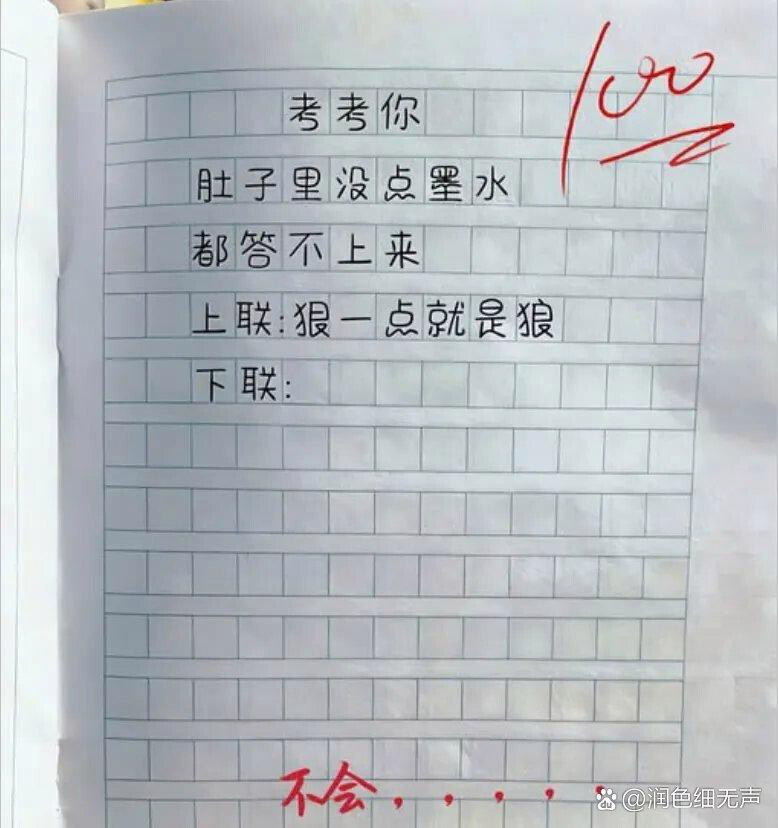 100
考考你
肚子里没点墨水
都答不上来
上联:狠一点就是狼
下联:
不会.....
@润色细无声